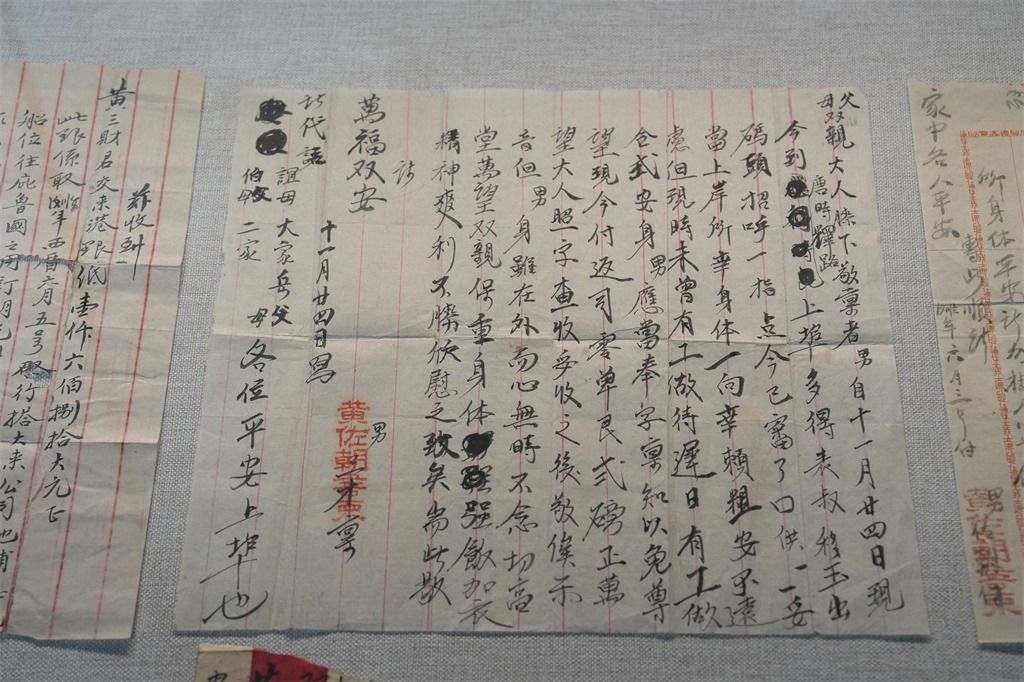 父母双親大人膝下敬稟者男自十一月廿四日現
今到唐時鐸路上埠多得表叔移玉出
碼頭招呼一指点今已審了口供一一妥
當上岸所幸身体一向幸賴粗安不遠
慮但現時未曾有工做待遲日有工做
合式安身男應當奉字稟知以免尊
望現今付返司零單艮弍磅正萬
望大人照字查收妥收之後敬候示
音但男身雖在外而心無時不念切高
堂萬望双親保重身体強飯加衣
精神爽利不勝欣慰之致矣耑此敬
請
萬福双安
男
黃佐朝
稟
十一月廿四日寫
請代語
祖母大家岳父母各位平安上埠也
伯父母二家
茲收到
黃三財君交來港銀紙壹仟六佰捌拾大元正
此銀係取西曆六月五号
船位往庇魯國之用訂明
行搭大来公司
家中各人平安
所身体平安
專此順
年六月三号付
男佐朝